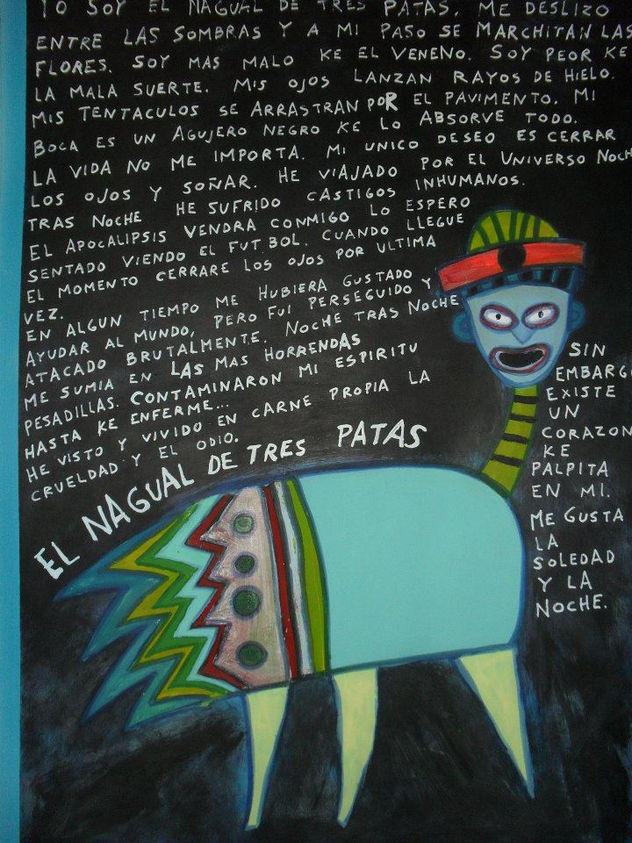 YO SOY EL NAGUAL DE TRES PATAS. ME DESLIZO
ENTRE LAS SOMBRAS Y A MI PASO SE MARCHITAN LAS
FLORES. SOY MAS MALO KE EL VENENO. SOY PEOR KE
LA MALA SUERTE. MIS OJOS LANZAN RAYOS DE HIELO.
MIS TENTACULOS SE ARRASTRAN POR EL PAVIMENTO. MI
BOCA ES UN AGUJERO NEGRO KE LO ABSORVE TODO.
LA VIDA NO ME IMPORTA. MI UNICO DESEO ES CERRAR
LOS OJOS Y SOÑAR. HE VIAJADO POR EL UNIVERSO NOCH
TRAS NOCHE HE SUFRIDO CASTIGOS INHUMANOS.
EL APOCALIPSIS VENDRA CONMIGO LO ESPERO
SENTADO VIENDO EL FUTBOL. CUANDO LLEGUE
EL MOMENTO CERRARE LOS OJOS POR ULTIMA
VEZ.
EN ALGUN TIEMPO ME HUBIERA GUSTADO
AYUDAR AL MUNDO, PERO FUI PERSEGUIDO Y
ATACADO BRUTALMENTE. NOCHE TRAS NOCHE
ME SUMIA EN LAS MAS HORRENDAS
PESADILLAS. CONTAMINARON MI ESPIRITU
HASTA KE ENFERME...
HE VISTO Y VIVIDO EN CARNE PROPIA LA
CRUELDAD Y EL ODIO.
EL NAGUAL DE TRES PATAS
SIN
EMBARG
EXISTE
UN
CORAZON
KE
PALPITA
EN MI.
ME GUSTA
LA
SOLEDAD
Y LA
NOCHE.